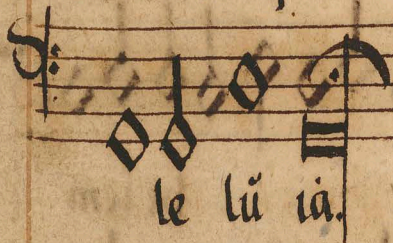 le lũ ia.